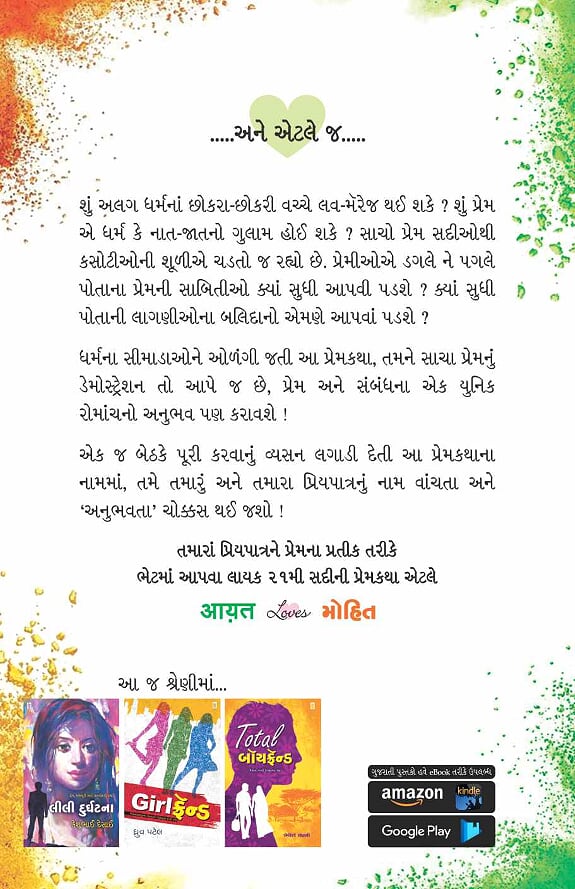 .....અને એટલે જ.....
શું અલગ ધર્મનાં છોકરા-છોકરી વચ્ચે લવ-મૅરેજ થઈ શકે ? શું પ્રેમ
એ ધર્મ કે નાત-જાતનો ગુલામ હોઈ શકે ? સાચો પ્રેમ સદીઓથી
કસોટીઓની શૂળીએ ચડતો જ રહ્યો છે. પ્રેમીઓએ ડગલે ને પગલે
પોતાના પ્રેમની સાબિતીઓ ક્યાં સુધી આપવી પડશે ? ક્યાં સુધી
પોતાની લાગણીઓના બલિદાનો એમણે આપવાં પડશે ?
ધર્મના સીમાડાઓને ઓળંગી જતી આ પ્રેમકથા, તમને સાચા પ્રેમનું
ડેમોસ્ટ્રેશન તો આપે જ છે, પ્રેમ અને સંબંધના એક યુનિક
રોમાંચનો અનુભવ પણ કરાવશે !
એક જ બેઠકે પૂરી કરવાનું વ્યસન લગાડી દેતી આ પ્રેમકથાના
નામમાં, તમે તમારું અને તમારા પ્રિયપાત્રનું નામ વાંચતા અને
‘અનુભવતા’ ચોક્કસ થઈ જશો !
તમારાં પ્રિયપાત્રને પ્રેમના પ્રતીક તરીકે
ભેટમાં આપવા લાયક ૨૧મી સદીની પ્રેમકથા એટલે
आय़त Loves મોહિત
આ જ શ્રેણીમાં...
લીલી દુર્ઘટના
કેશુભાઈ દેસાઈ
Girlફ્રેન્ડ
ધ્રુવ પટેલ
Total
બૉયફ્રેન્ડ
ગુજરાતી પુસ્તકો હવે eBook તરીકે ઉપલબ્ધ
amazon kindle
Google Play